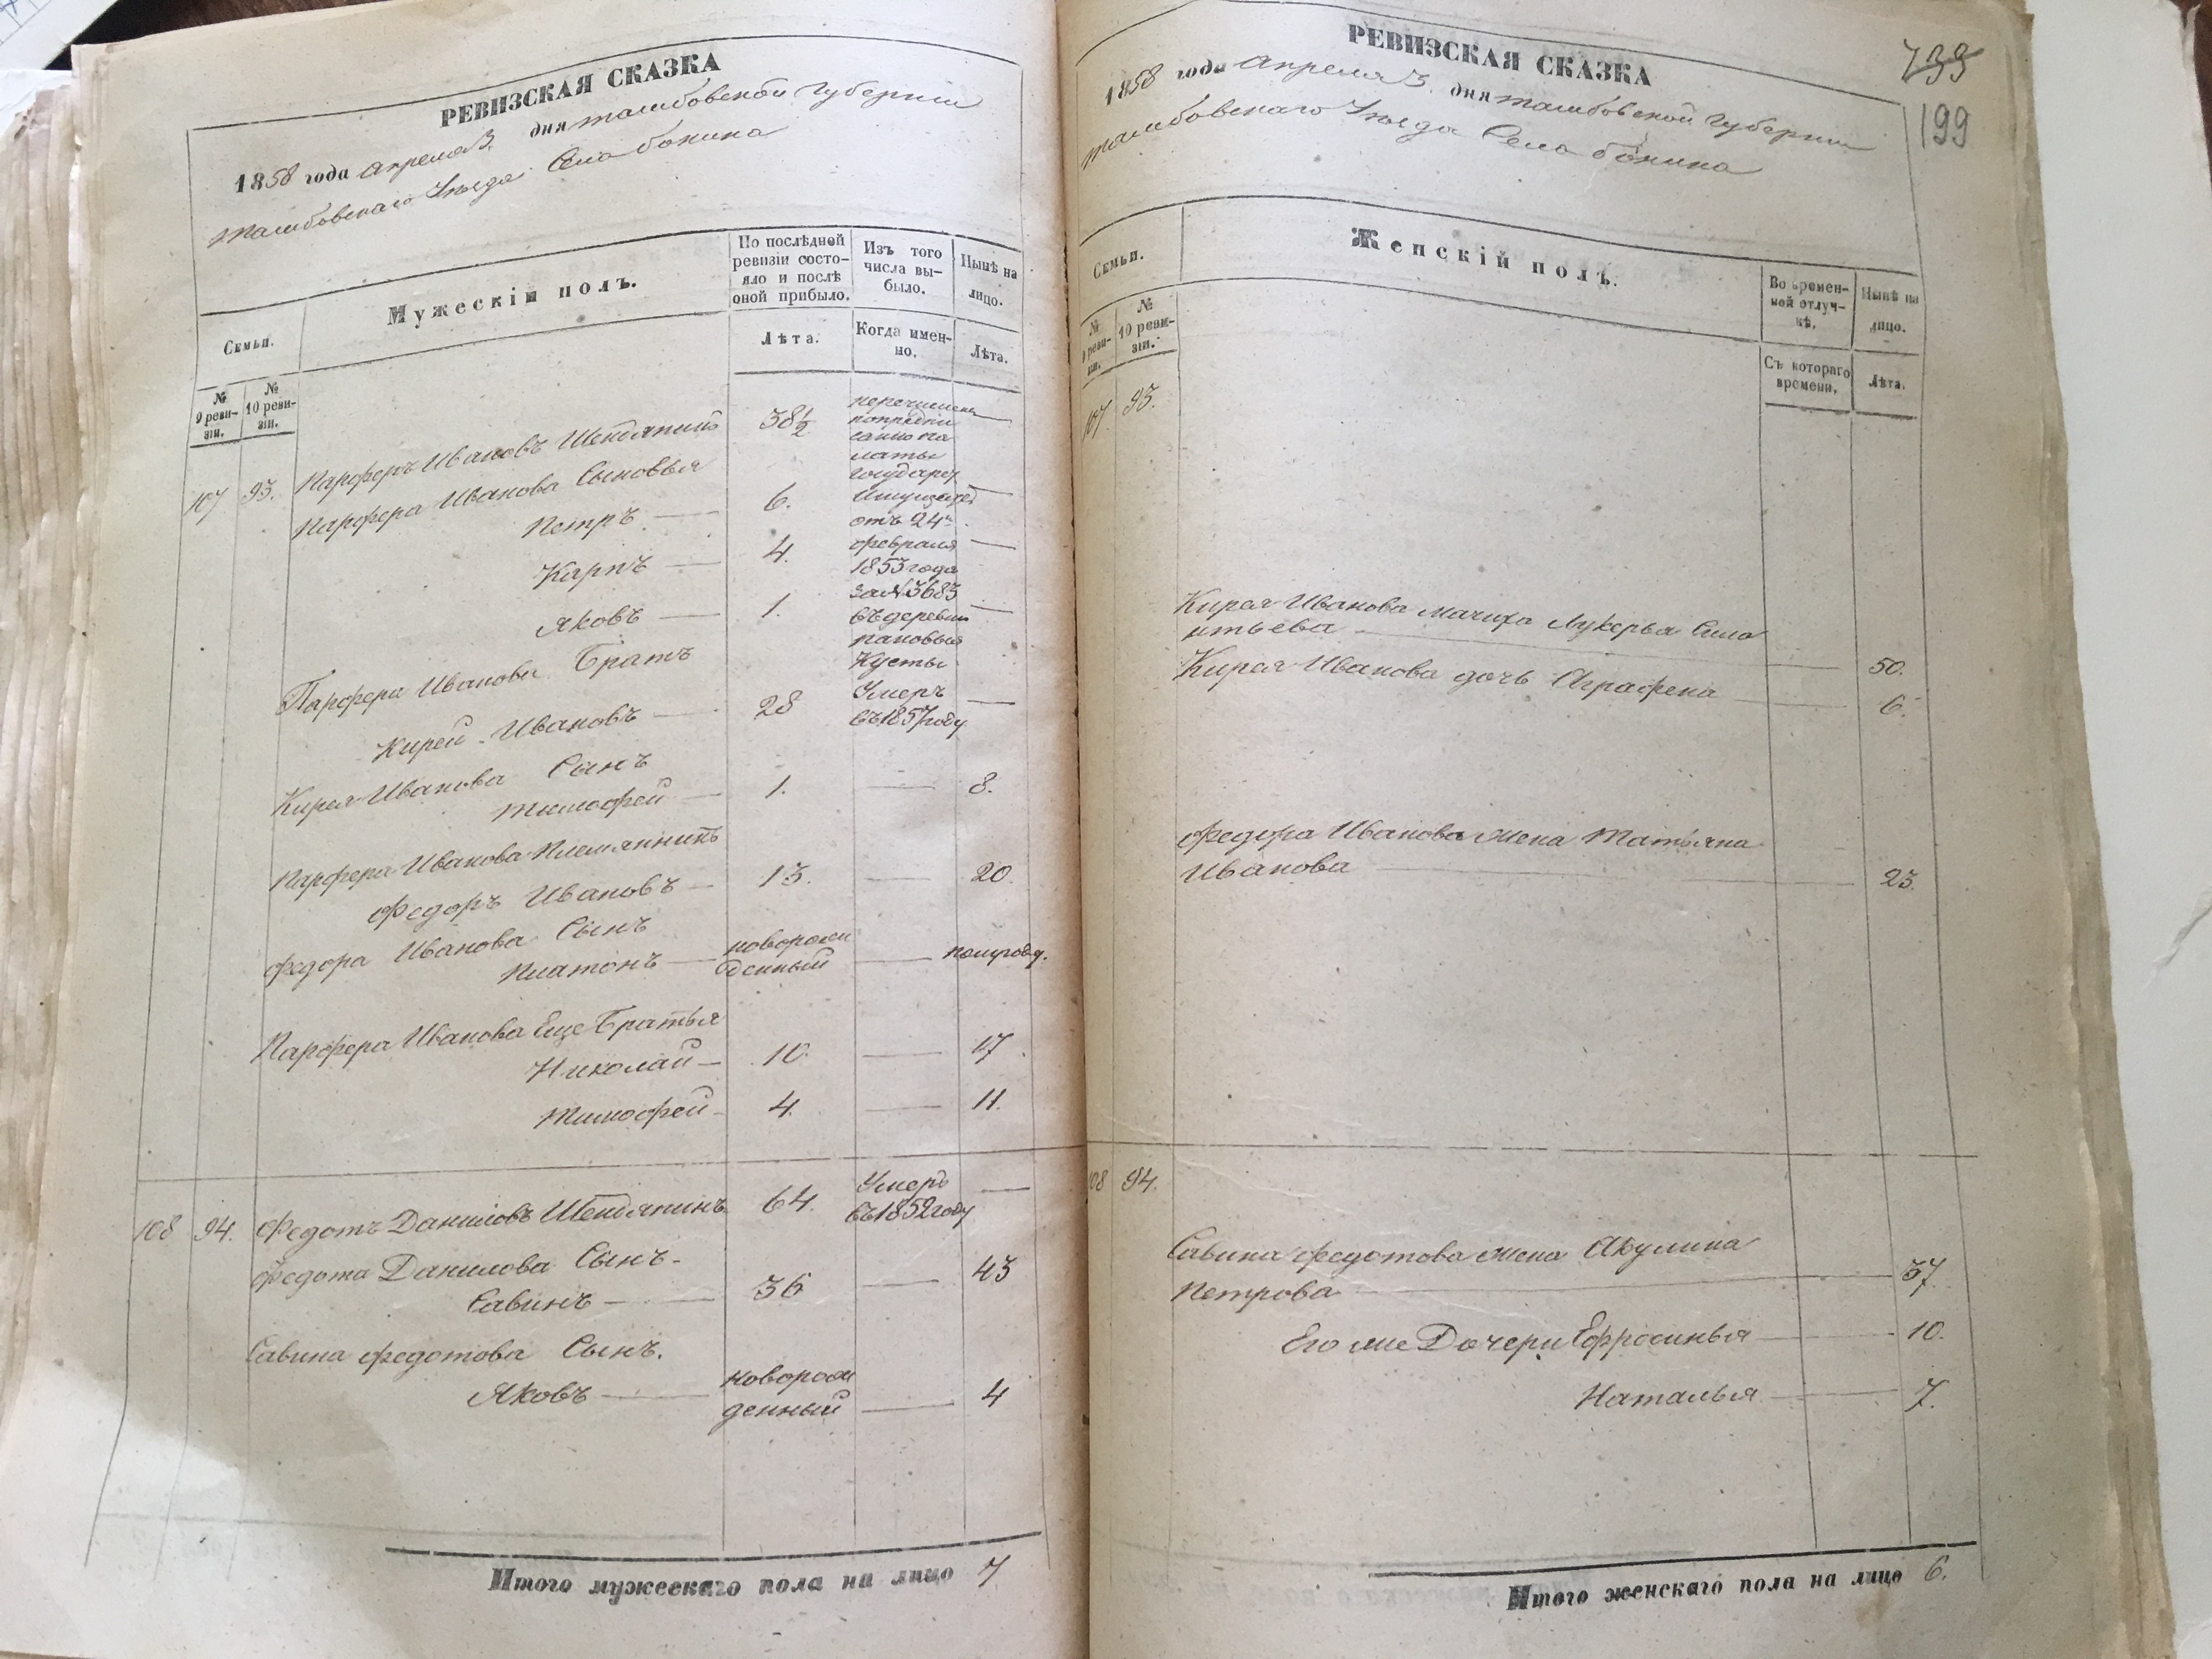 РЕВИЗСКАЯ СКАЗКА
1858 года апреля 3. дня тамбовской губернии
тамбовскаго Уезда Села бокина
Семьи.
Мужескій полъ.
По послѣдней ревизіи состо-
яло и послѣ
оной прибыло.
Изъ того
числа вы-
было.
Нынѣ на
лицо.
№
9 реви-
зіи.
№
10 реви-
зіи.
Лѣта.
Когда имен-
но.
Лѣта.
107 93. Парферъ Ивановъ 38½
перечислены
попредпи
санию па
латы
государ
Имуществ
отъ 24го
февраля
1853 года
за №3683
въ деревню
пановыя
Кусты
Парфера Иванова Сыновья
Петръ 6.
Карпъ 4.
Яковъ 1.
Парфера Иванова Братъ
Кирей Ивановъ 28 Умеръ
въ 1857 году
Кирея Иванова Сынъ
тимофей 1. 8.
Парфера Иванова Племянникъ
Федоръ Ивановъ 13. 20.
Федора Иванова Сынъ
Платонъ новорож
денный полугода.
Парфера Иванова Еще Братья
Николай 10. 17.
тимофей 4. 11.
108 94. Федотъ Даниловъ 64. Умеръ
въ 1852 году
Федота Данилова Сынъ
Савинъ 36 43
Савина Федотова Сынъ.
Яковъ новорож
денный 4
Итого мужескаго пола на лицо 7
РЕВИЗСКАЯ СКАЗКА
739
199
1858 года апреля 3. дня тамбовской губернии
тамбовскаго Уезда Села бокина
Семьи.
Женскій полъ.
Во времен-
ной отлуч-
кѣ.
Нынѣ на
лицо.
№
9 реви-
зіи.
№
10 реви-
зіи.
Съ котораго
времени.
Лѣта.
107 93.
Кирея Иванова мачиха Лукерья Сила
нтьева 50.
Кирея Иванова дочь Аграфена 6.
Федора Иванова жена татьяна
Иванова 23.
108 94.
Савина Федотова жена Акулина
Петрова 37
Его же Дочери Ефросинья 10.
Наталья 7.
Итого женскаго пола на лицо 6.